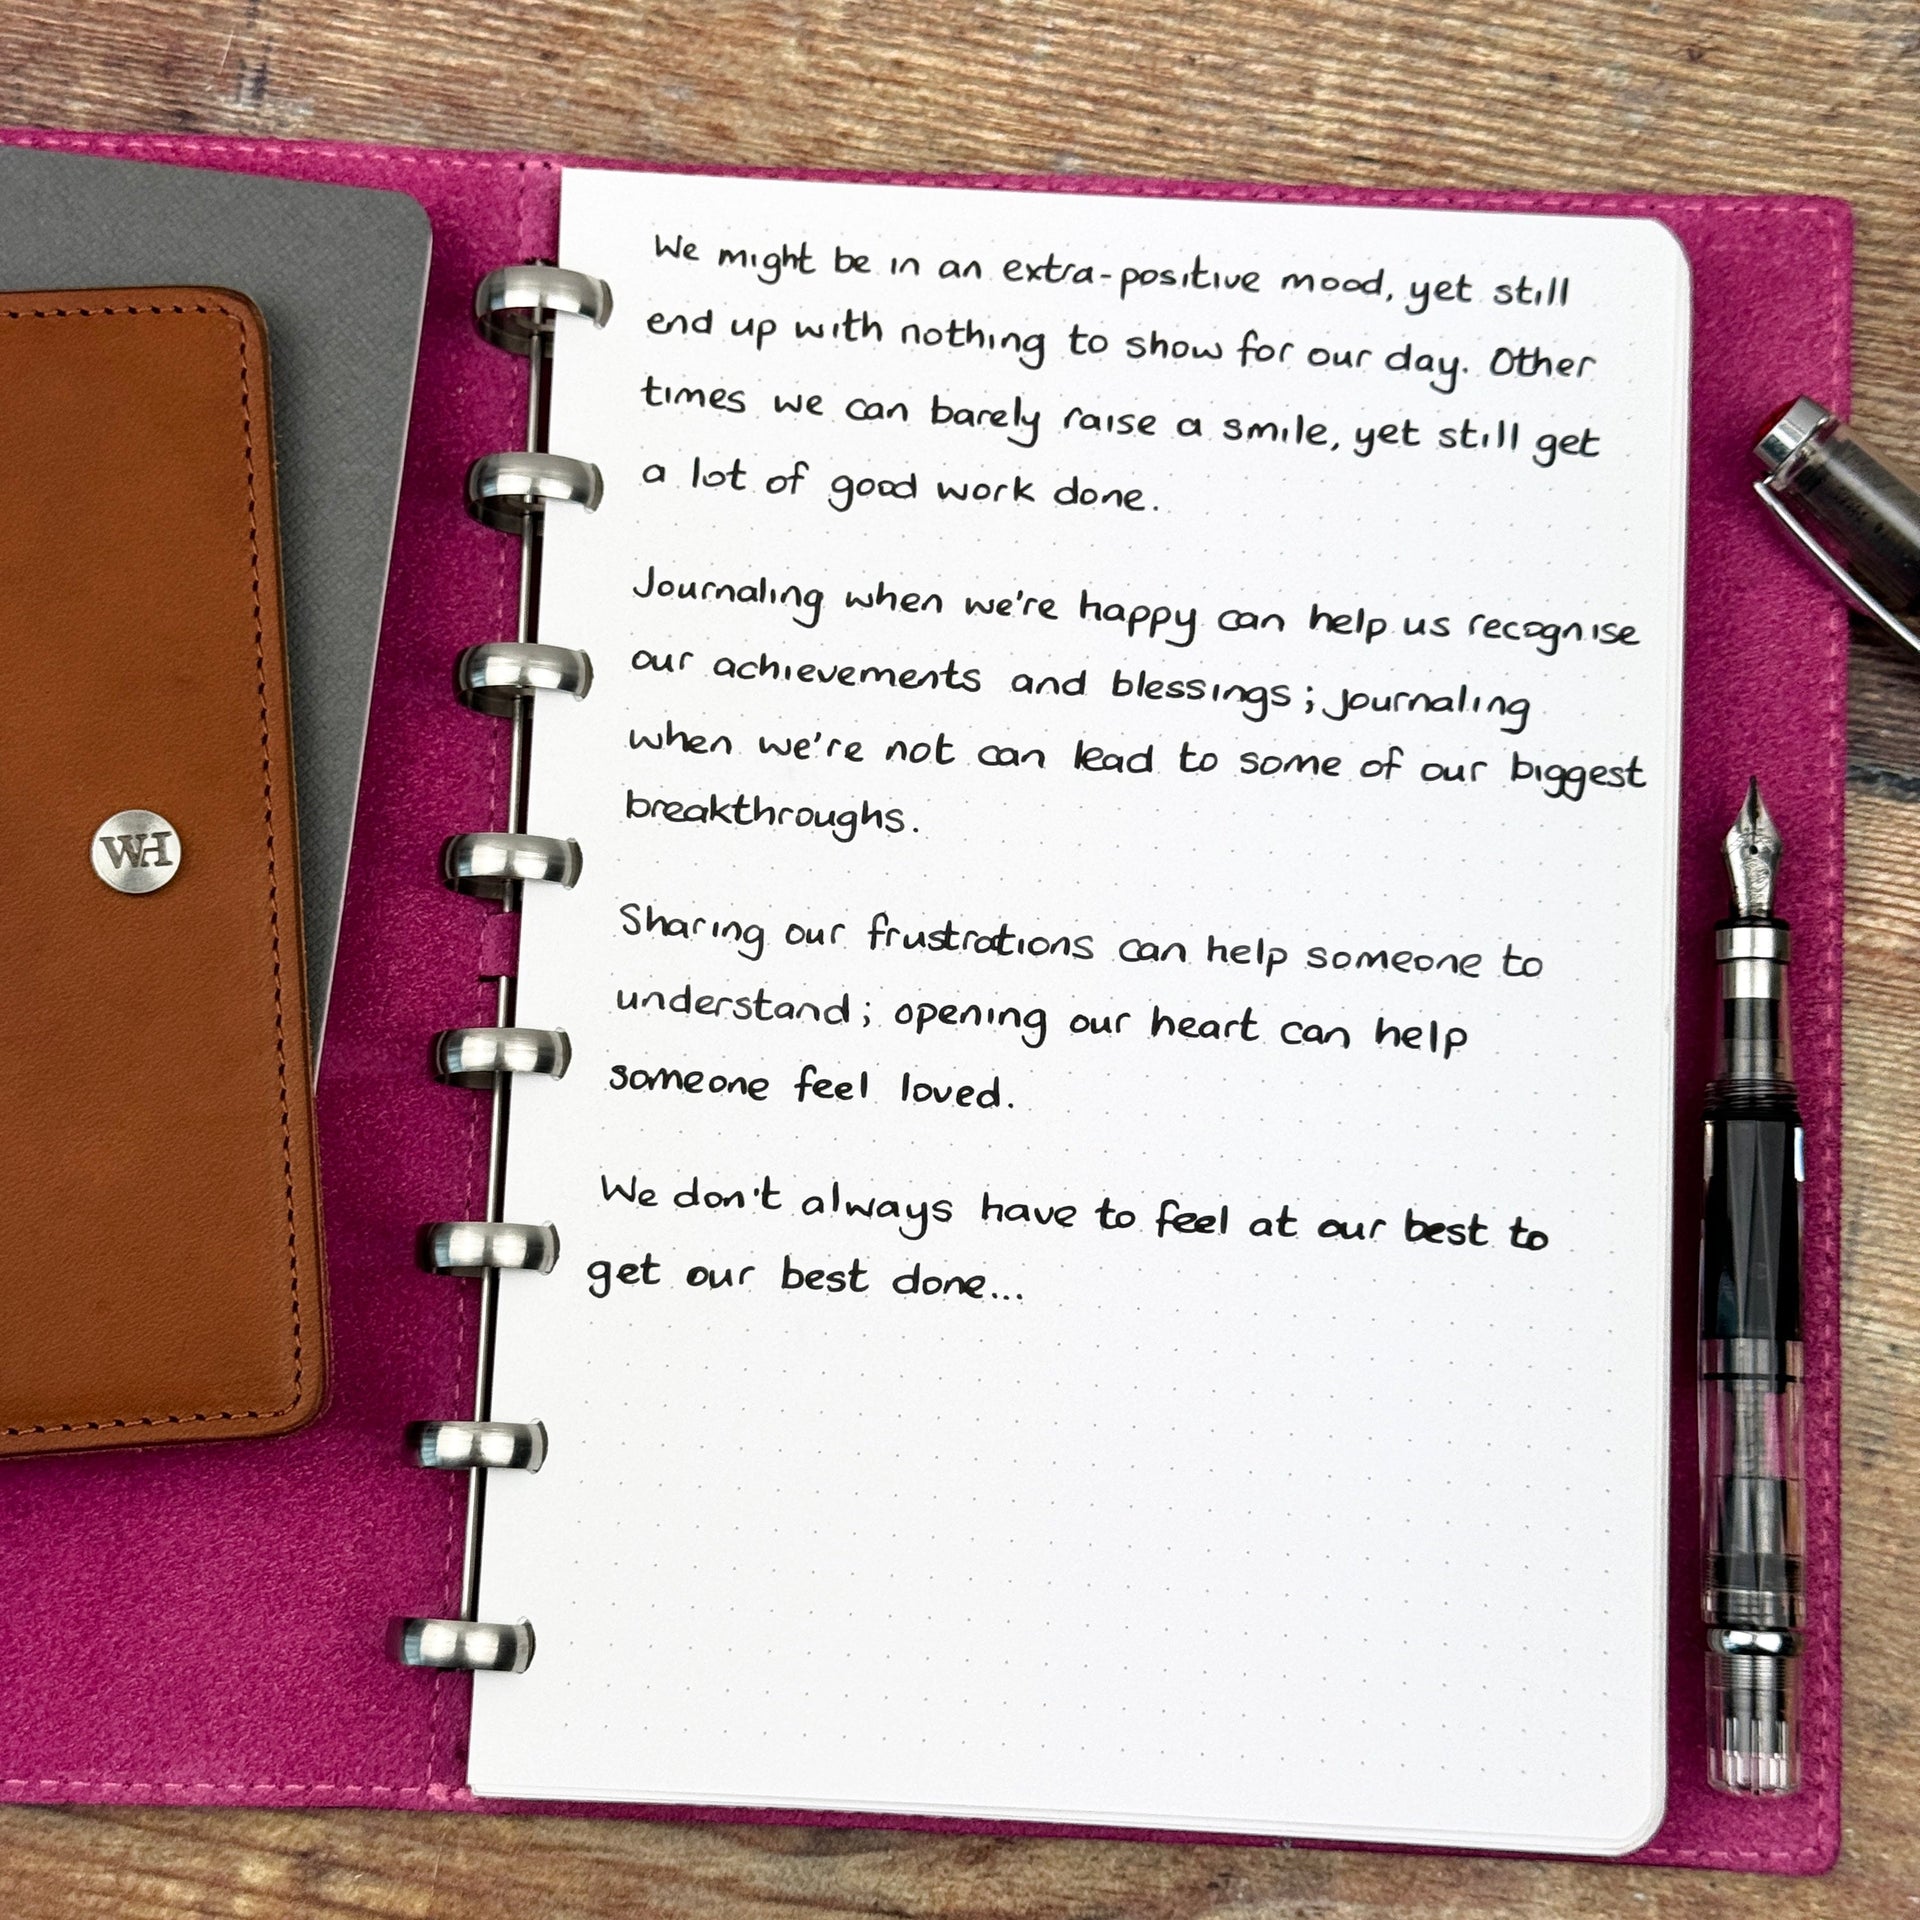 We might be in an extra-positive mood, yet still
end up with nothing to show for our day. Other
times we can barely raise a smile, yet still get
a lot of good work done.
Journaling when we're happy can help us recognise
our achievements and blessings; journaling
when we're not can lead to some of our biggest
breakthroughs.
Sharing our frustrations can help someone to
understand; opening our heart can help
someone feel loved.
We don't always have to feel at our best to
get our best done...
WH